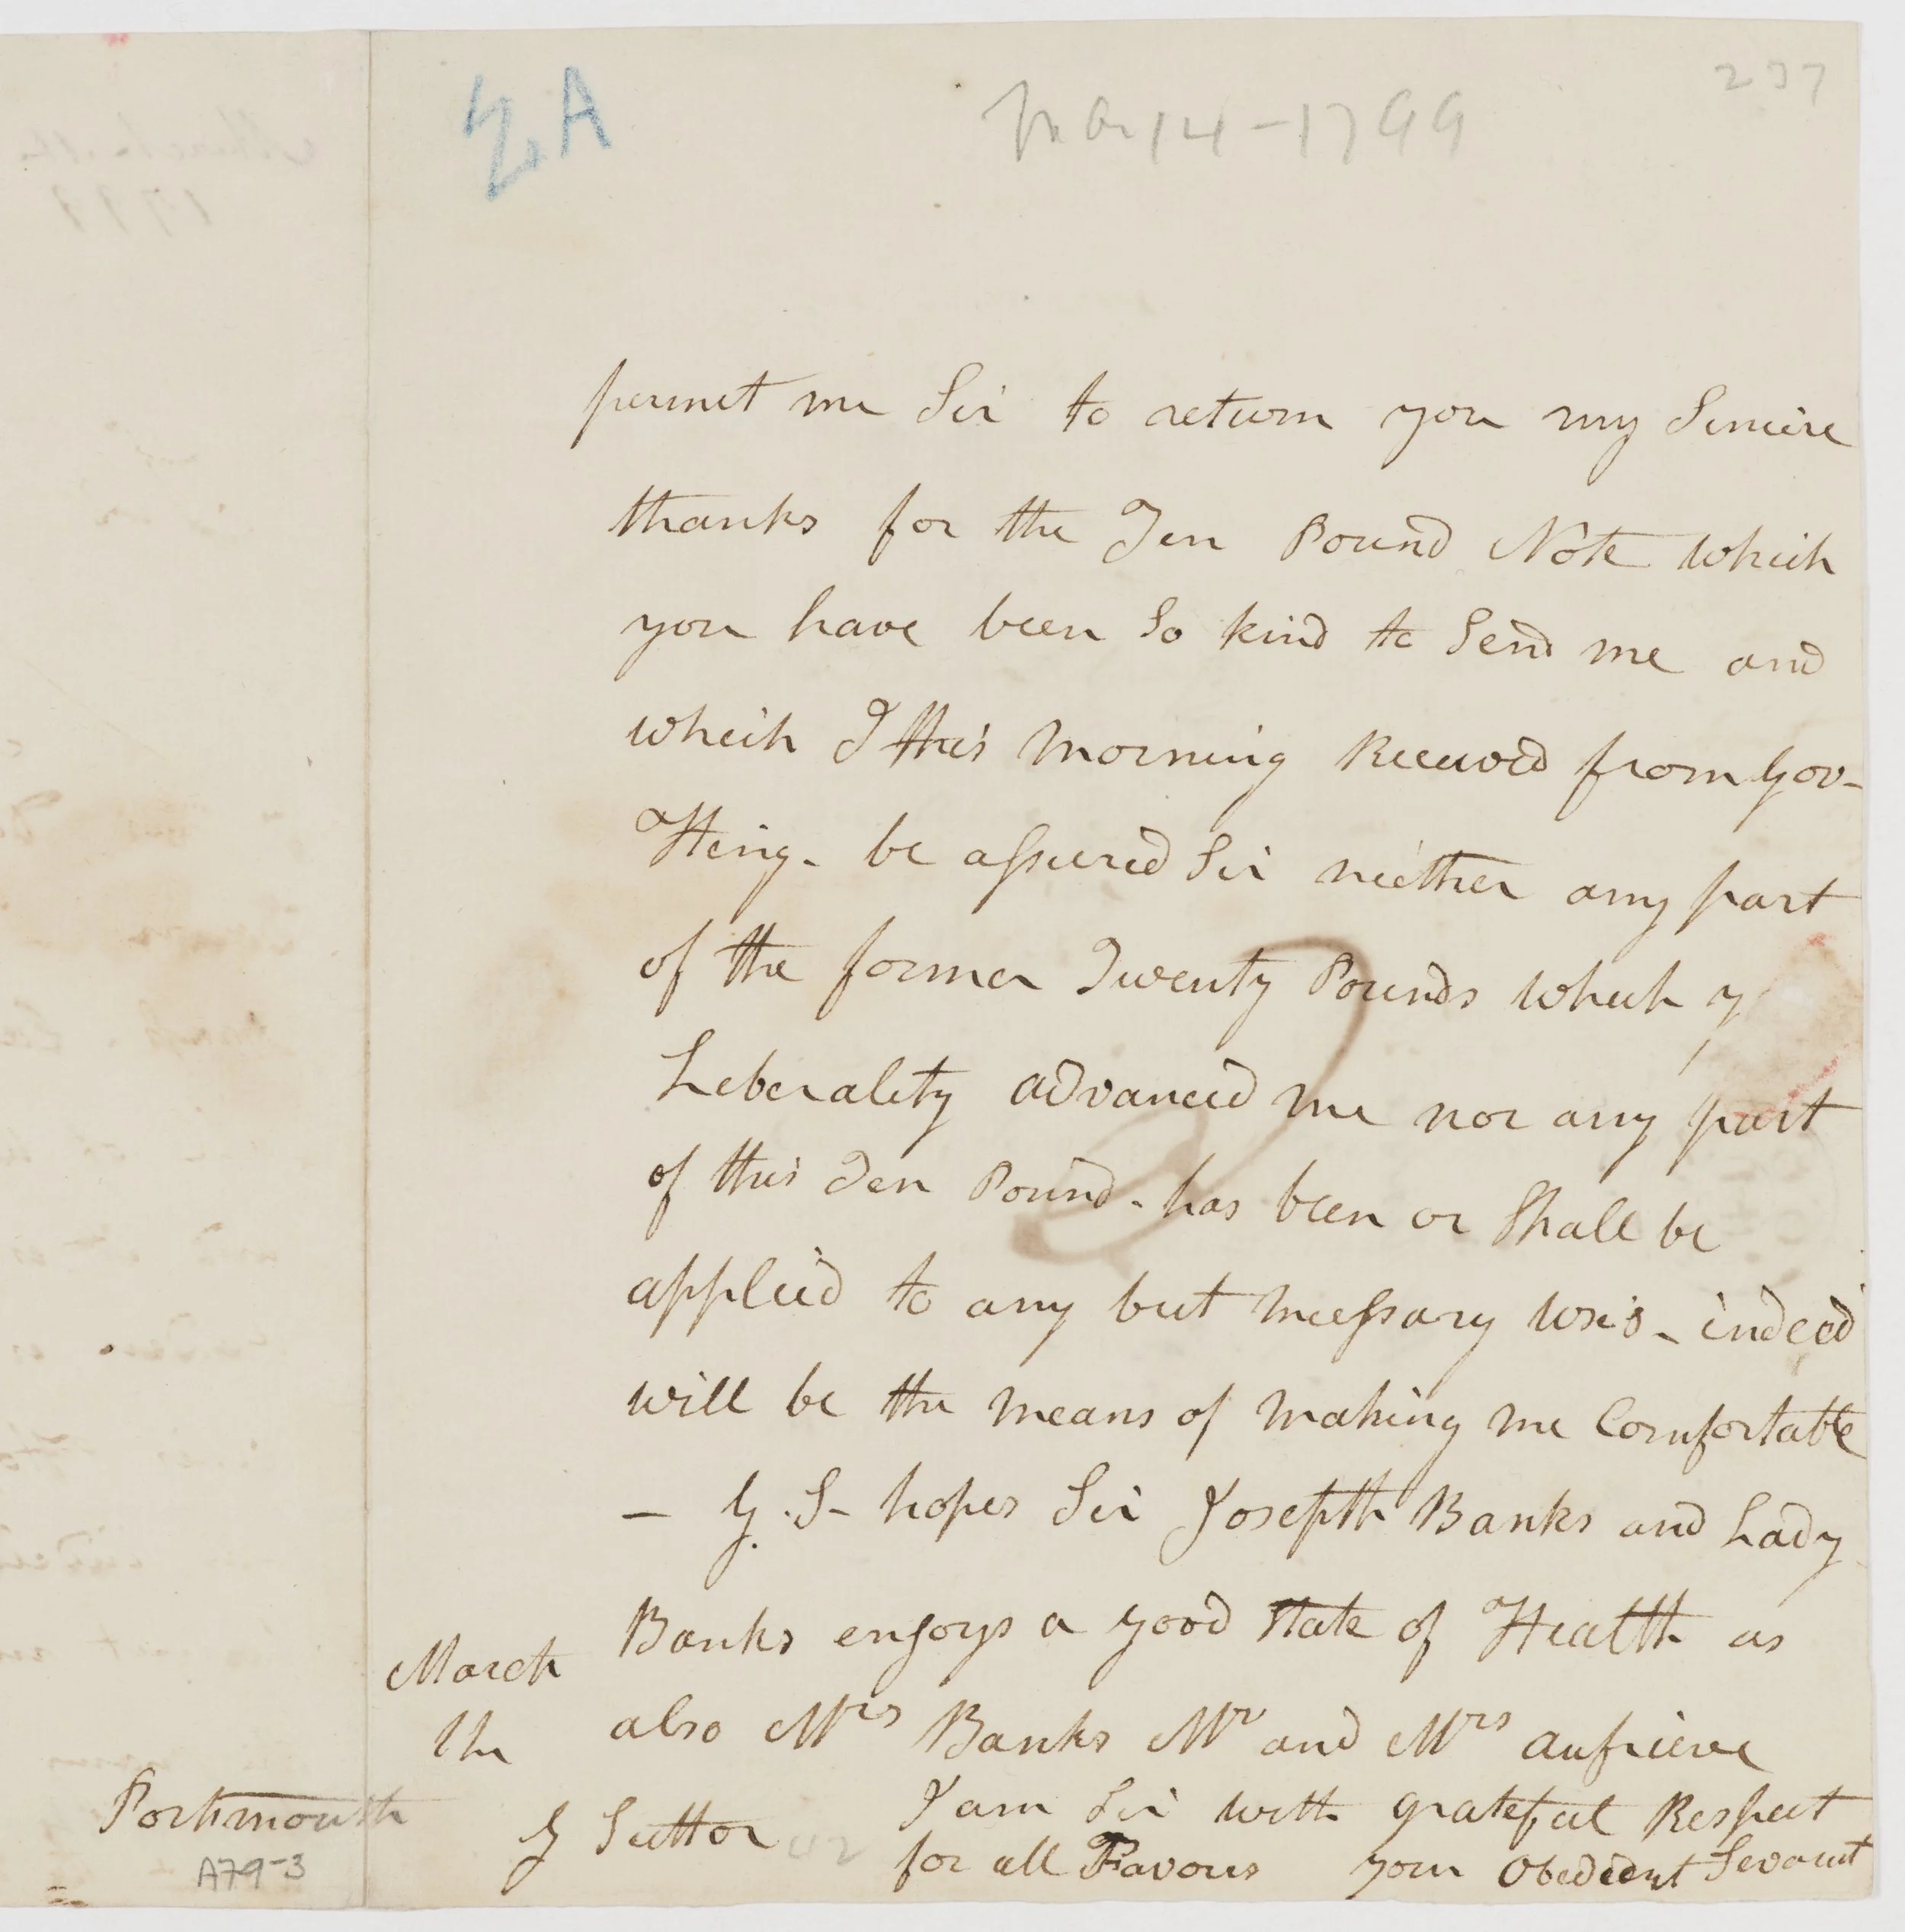 237
Mar 14-1799
permit me Sir to return you my Sincere
thanks for the Ten Pound Note which
you have been So kind to Send me and
which I this Morning Received from Gov-
King- be assured Sir neither any part
of the former Twenty Pounds which y
Leberality advanced me nor any part
of this Ten Pound - has been or Shall be
applied to any but necessary uses - indeed
will be the means of making me Comfortable
— G. S- hopes Sir Joseph Banks and Lady
Banks enjoys a good State of Health as
also Mrs Banks Mr and Mrs
I am Sir with grateful Respect
for all Favours your Obedient Servant
March
the
G Suttor
Portsmouth
A79-3